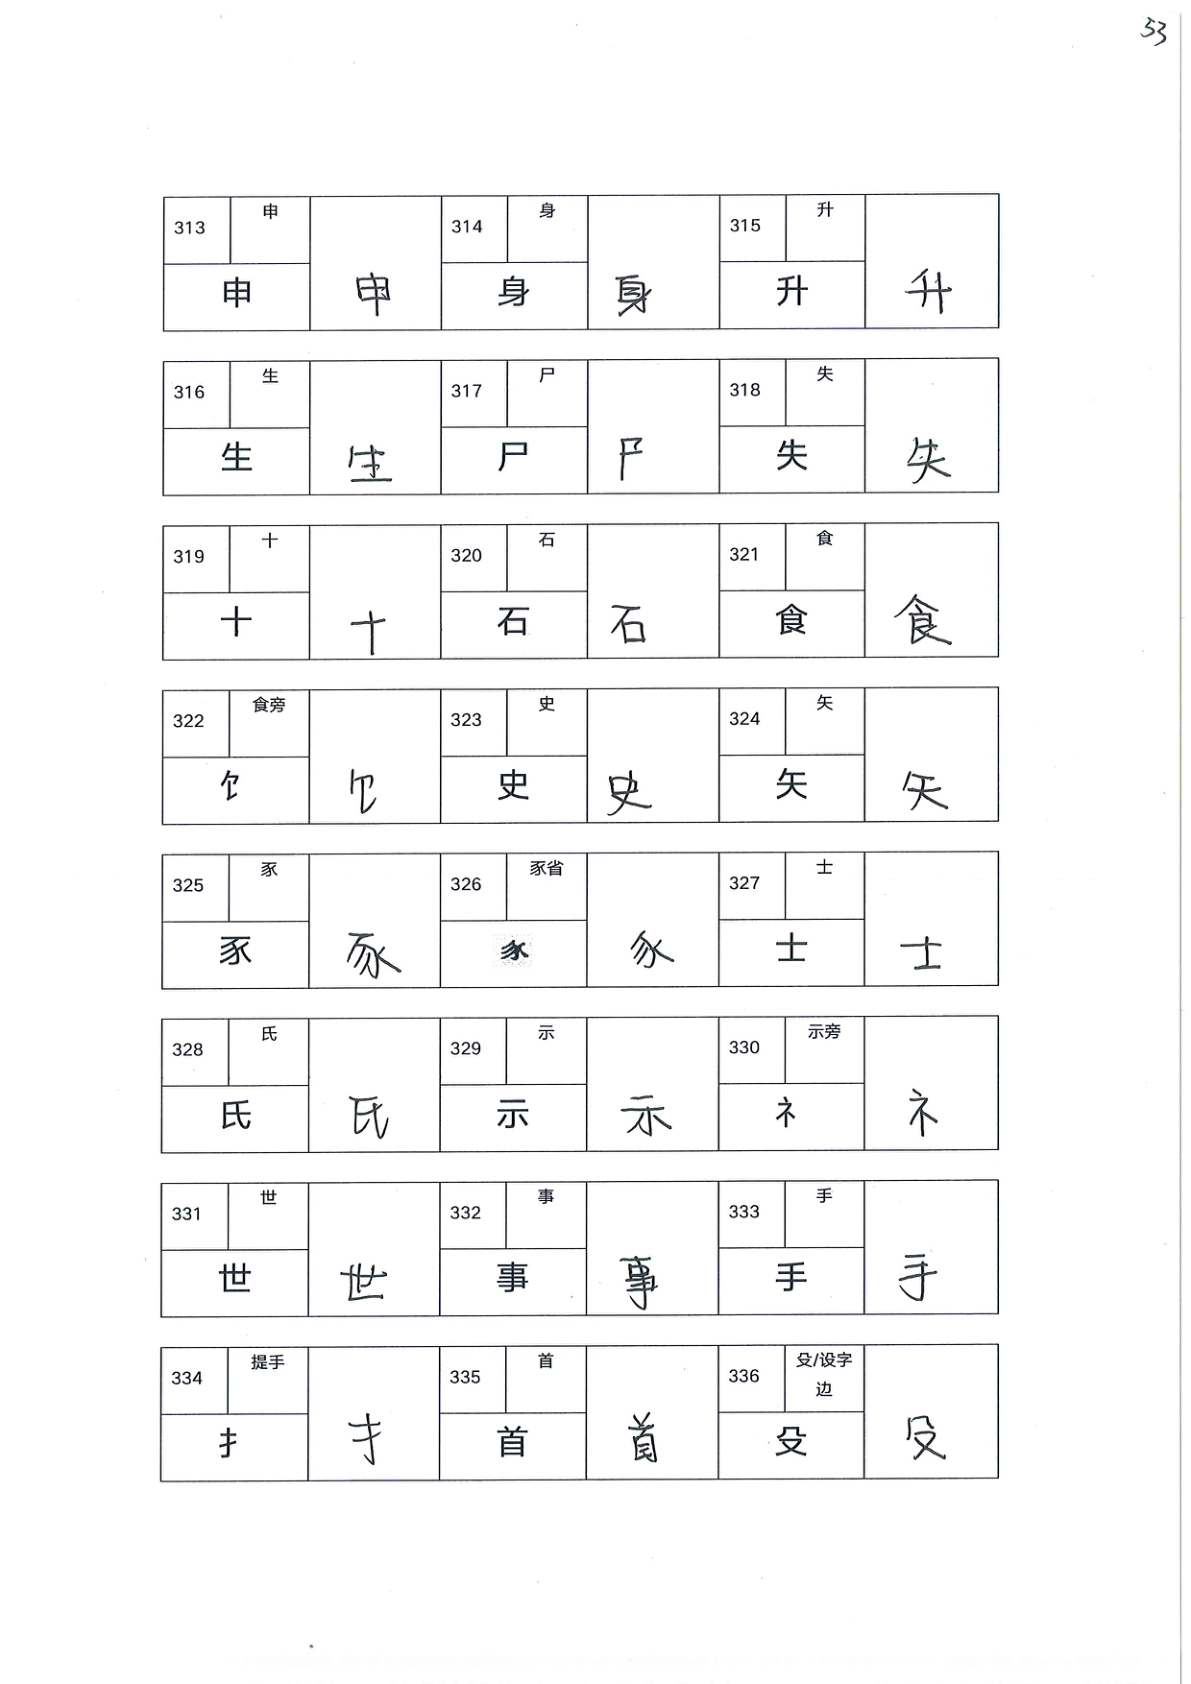 53
313 申 314 身 315 升
申 申 身 身 升 升
316 生 317 尸 318 失
生 生 尸 尸 失 失
319 十 320 石 321 食
十 十 石 石 食 食
322 食旁 323 史 324 矢
饣 饣 史 史 矢 矢
325 豕 326 豕省 327 士
豕 豕 士 士
328 氏 329 示 330 示旁
氏 氏 示 示 礻 礻
331 世 332 事 333 手
世 世 事 事 手 手
334 提手 335 首 336 殳/设字边
扌 扌 首 首 殳 殳